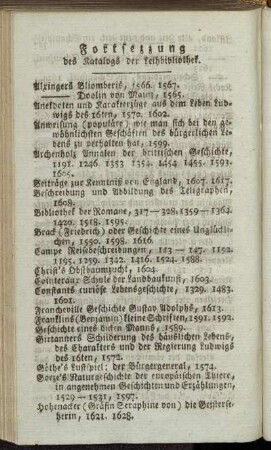 Fortsezzung
des Katalogs der Leihbibliothek.
Alxingers Bliomberis, 1566. 1567.
—— Doolin von Maynz, 1565.
Anekdoten und Karakterzüge aus dem Leben Lud-
wigs des 16ten, 1570. 1602.
Anweisung (populäre) wie man sich bei den ge-
wöhnlichsten Geschäften des bürgerlichen Le-
bens zu verhalten hat, 1599.
Archenholz Annalen der brittischen Geschichte,
1191. 1246. 1353. 1354. 1454. 1455. 1593.
1605.
Beiträge zur Kenntniß von England, 1607. 1617.
Beschreibung und Abbildung des Telegraphen,
1608.
Bibliothek der Romane, 317—328. 1359—1364.
1420. 1518. 1595.
Brack (Friedrich) oder Geschichte eines Unglückli-
chen, 1590. 1598. 1616.
Campe Reisebeschreibungen, 113—147. 1192.
1195. 1259. 1342. 1416. 1524. 1588.
Christ's Obstbaumzucht, 1604.
Cointeraux Schule der Landbaukunst, 1603.
Constants curiöse Lebensgeschichte, 1329. 1483.
1601.
Francheville Geschichte Gustav Adolphs, 1613.
Franklins (Benjamin) kleine Schriften, 1591. 1592.
Geschichte eines dicken Manns, 1589.
Girtanners Schilderung des häuslichen Lebens,
des Charakters und der Regierung Ludwigs
des 16ten, 1572.
Göthe's Lustspiel: der Bürgergeneral, 1574.
Goeze's Naturgeschichte der europäischen Thiere,
in angenehmen Geschichten und Erzählungen,
1529—1531, 1597.
Hohenacker (Gräfin Seraphine von) die Geisterse-
herin, 1621. 1628.